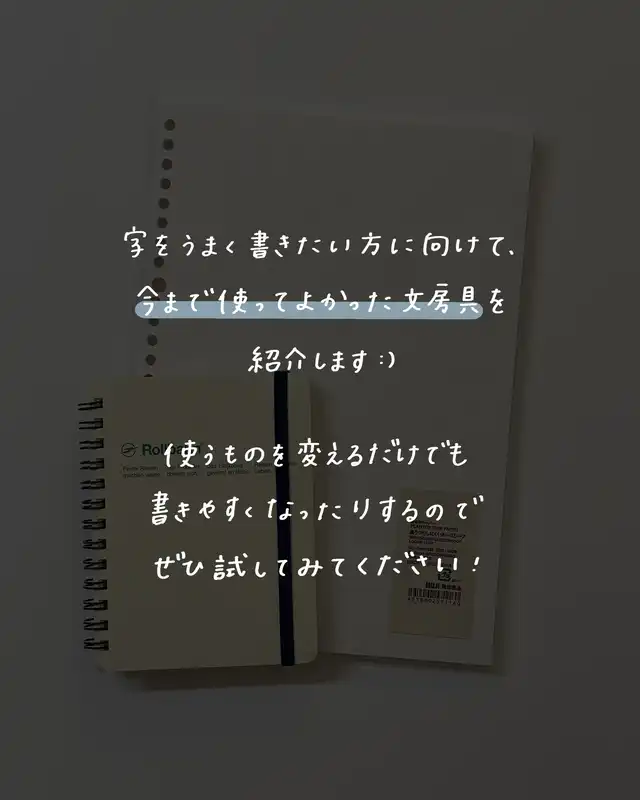 字をうまく書きたい方に向けて、
今まで使ってよかった文房具を
紹介します:)
使うものを変えるだけでも
書きやすくなったりするので
ぜひ試してみてください！